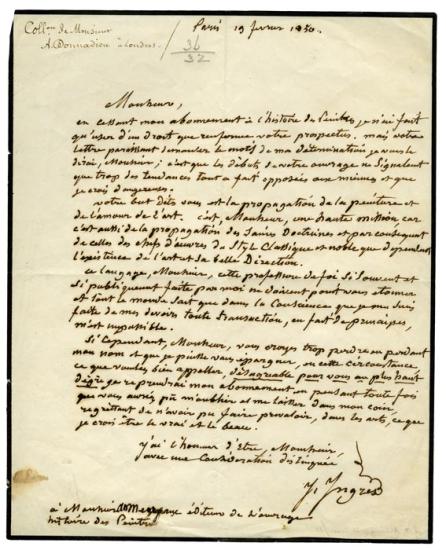 Coll.on de Monsieur
A. Donnadieu à Londres
Paris 19 fevrier 1850.
36
32
Monsieur,
en cessant mon abonnement à l'histoire des Peintres je n'ai fait
qu'user d'un droit que renferme votre prospectus. mais votre
lettre paraissant demander le motif de ma détermination je vous le
dirai, Monsieur; c'est que les débuts de votre ouvrage ne signalent
que trop des tendances tout a fait opposées aux miennes et que
je crois dangereuses.
votre but dites vous est la propagation de la peinture et
de l'amour de l'art. c'est, Monsieur, une haute mission car
c'est aussi de la propagation des saines Doctrines et par consequent
de celles des chefs d'œuvres de Style Classique et noble que dependent
l'existence de l'art et sa belle Direction.
ce langage, Monsieur, cette profession de foi si souvent et
si publiquement faite par moi ne doivent point vous etonner
et tout le monde sait que dans la Conscience que je me suis
faite de mes devoirs toute transaction, en fait de principes,
m'est impossible.
Si Cependant, Monsieur, vous croyez trop perdre en perdant
mon nom et que je puisse vous epargner, en cette circonstance,
ce que voulez bien appeller, désagréable pour vous au plus haut
degré je reprendrai mon abonnement en pensant toute fois
que vous auriez pû m'oublier et me laisser dans mon coin,
regrettant de n'avoir pu faire prevaloir, dans les arts, ce que
je crois être le vrai et le beau.
j'ai l'honneur d'Etre, Monsieur,
avec une Considération distinguée
J. Ingres
à Monsieur éditeur de l'ouvrage
histoire des Peintres